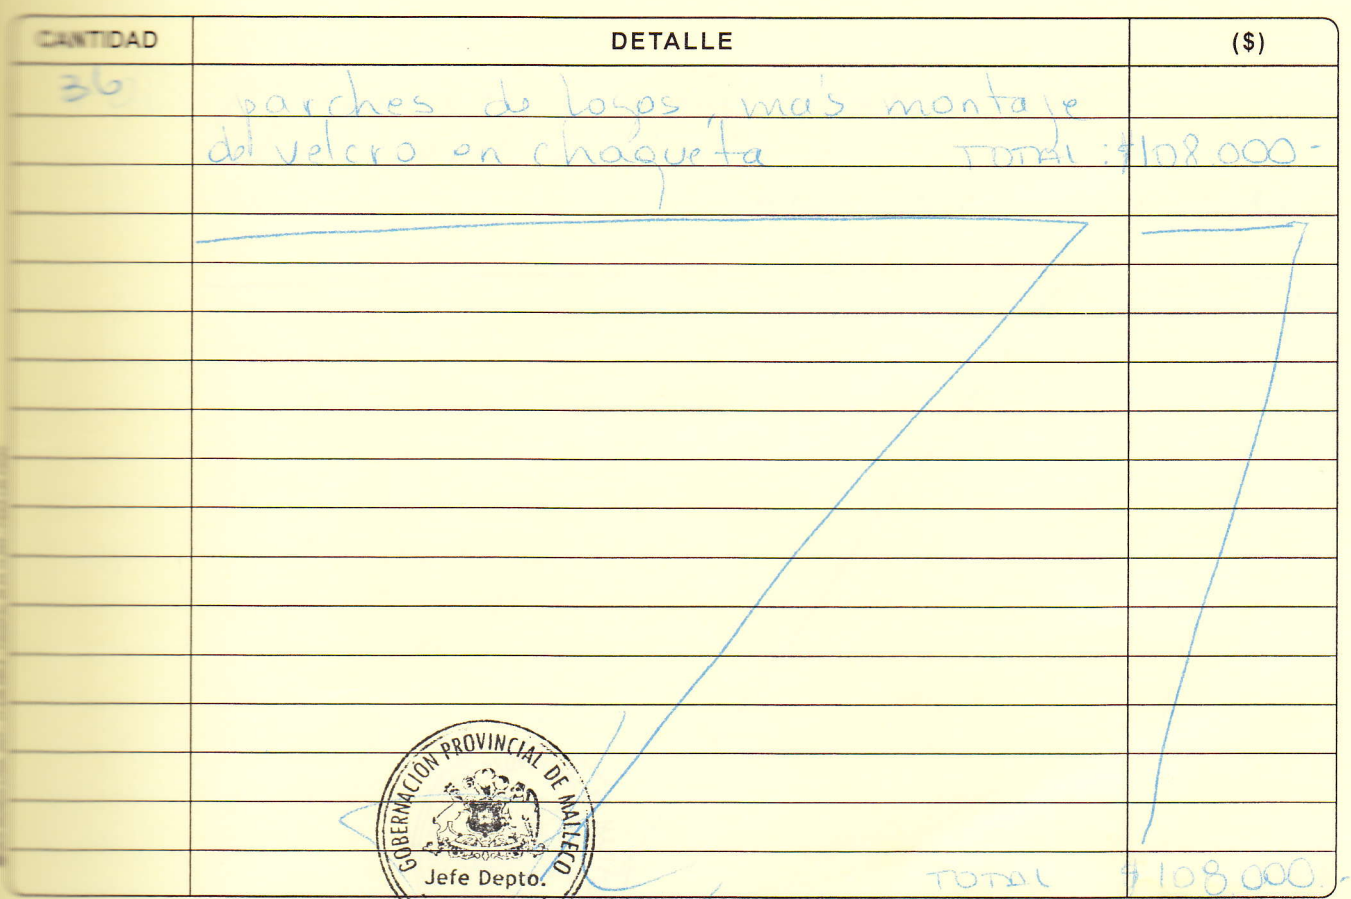 CANTIDAD DETALLE ($)
36 parches de logos, más montaje
del velcro en chaqueta TOTAL: $108.000.-
GOBERNACIÓN PROVINCIAL DE MALLECO
Jefe Depto.
TOTAL $108.000.-